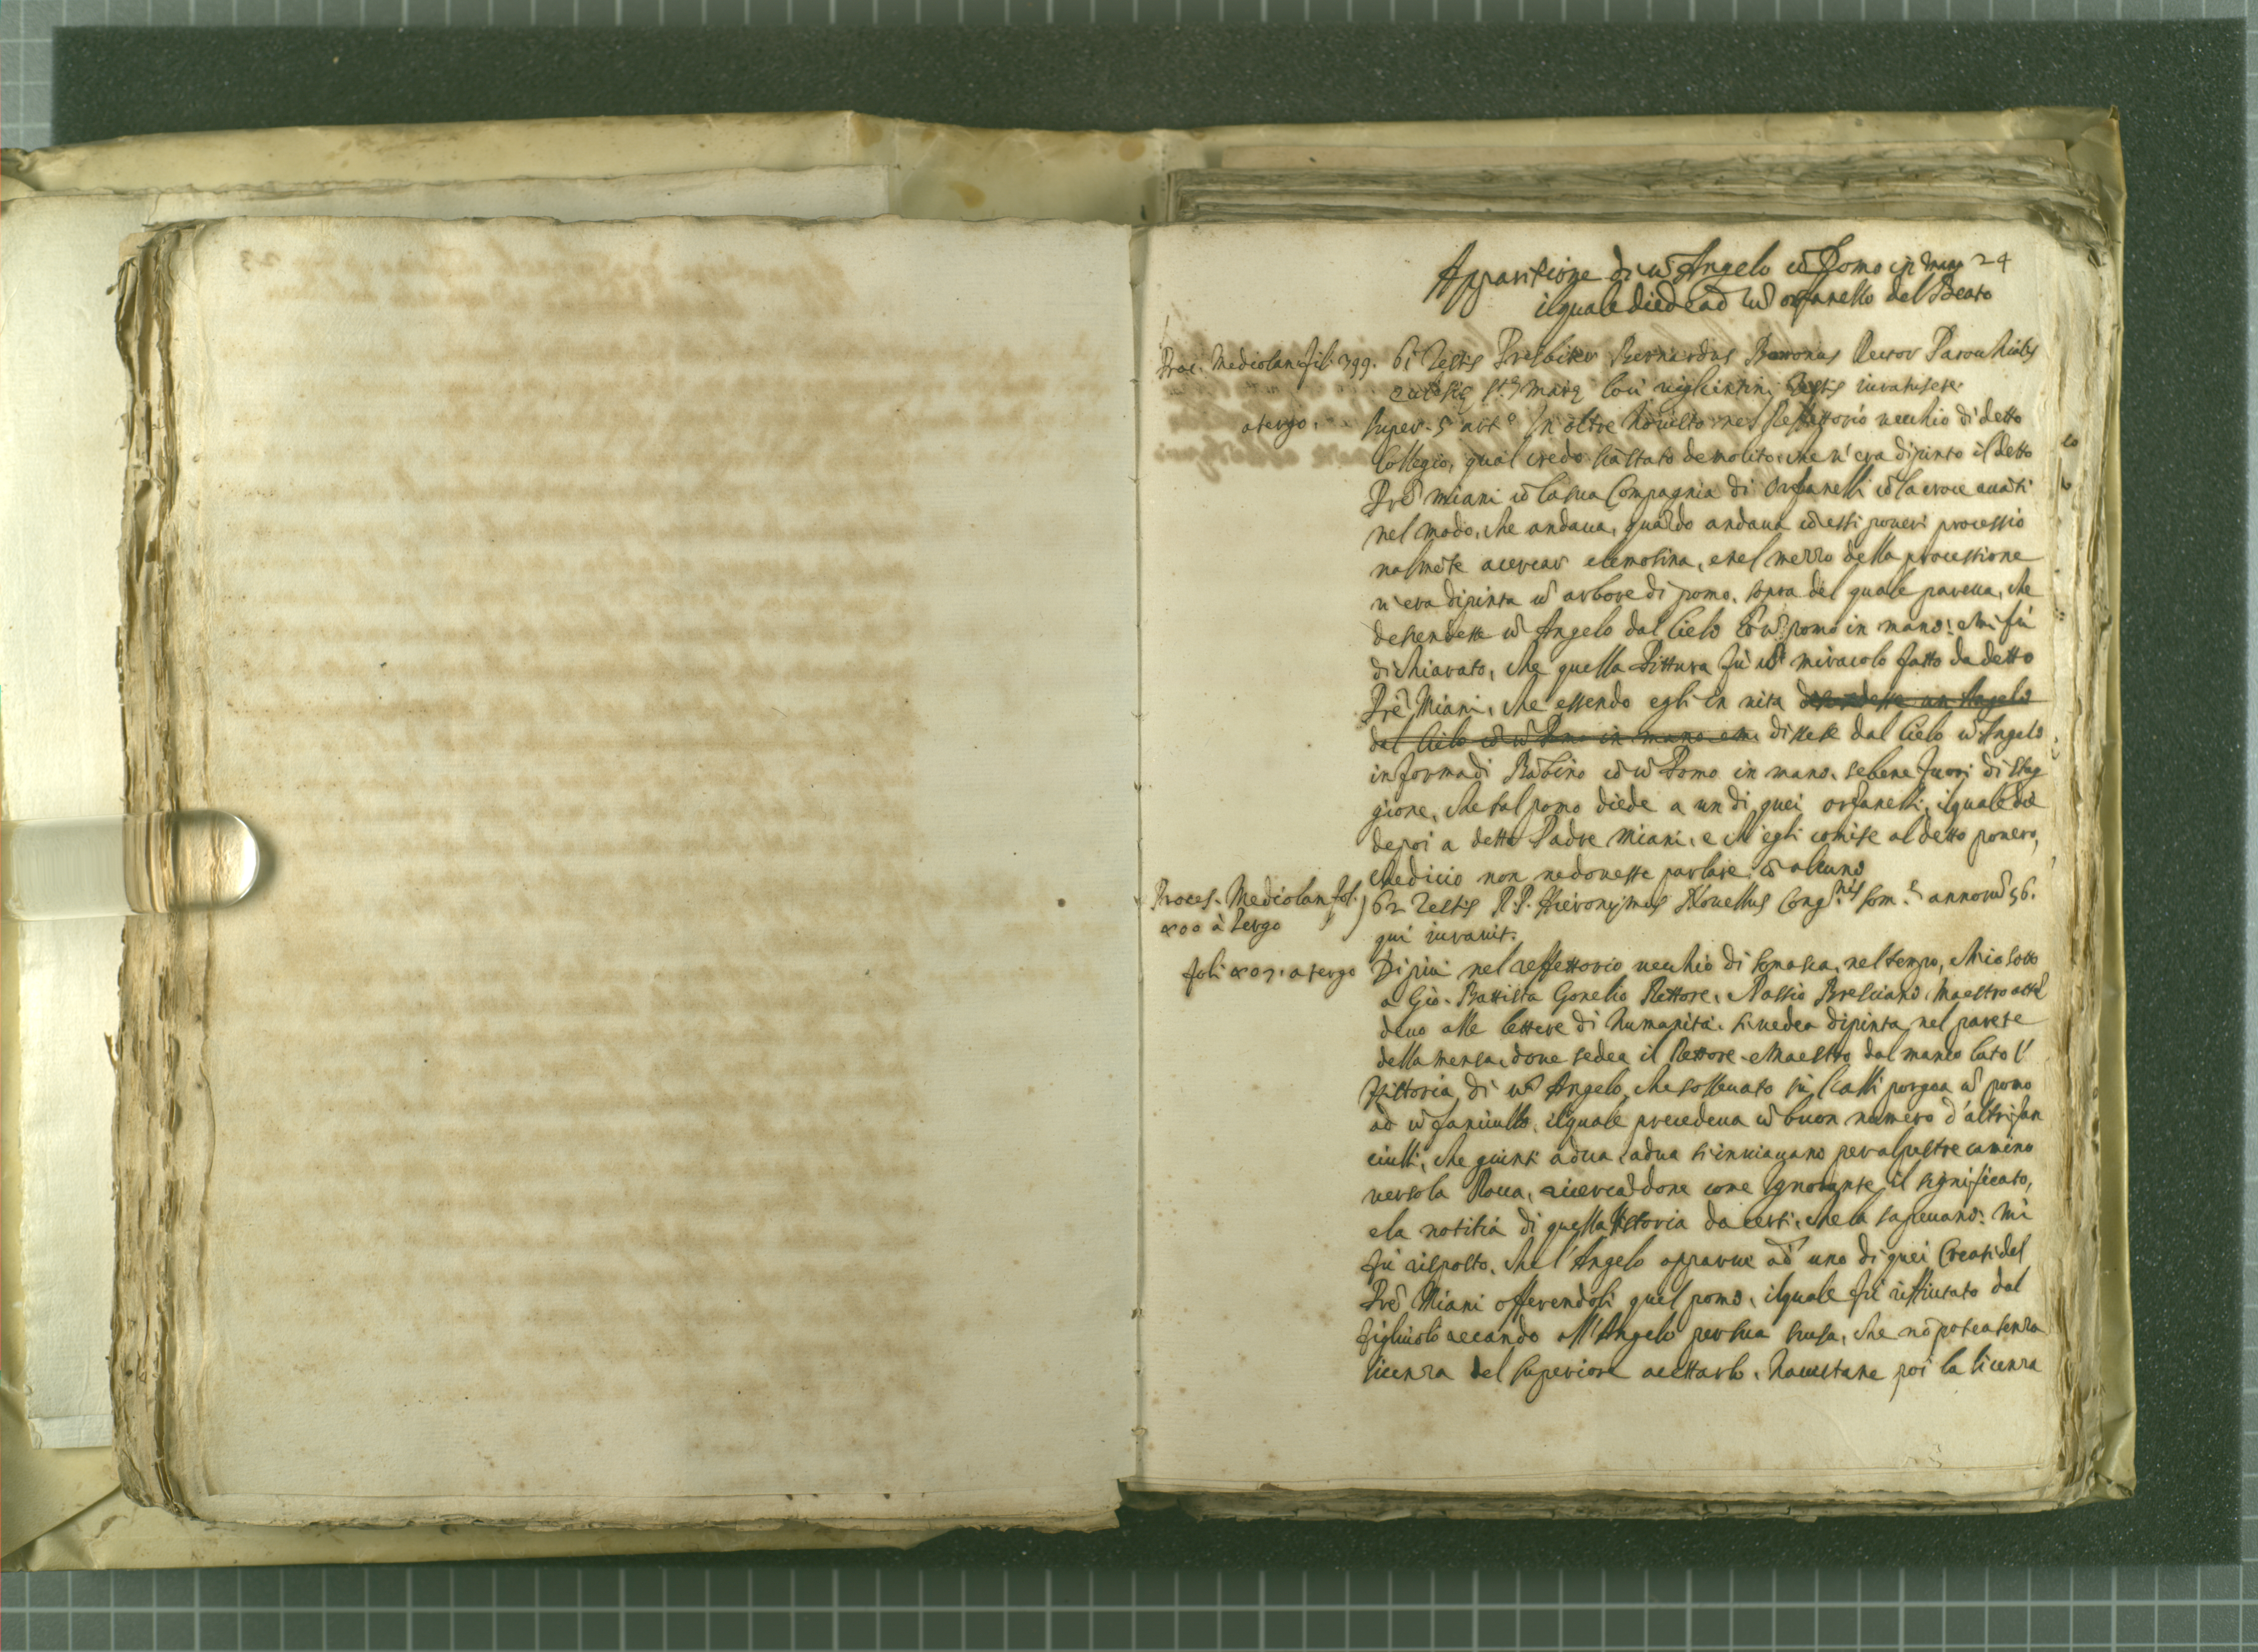 24
Apparitione di ũ Angelo cõ Pomo in mano
il quale diede ad ũ orfanello del Beato
Proc. Mediolan. fol. 399.
a tergo.
61 Testis Presbiter Bernardus Rector Parochialis
S.ti testis iuratus etc.
super 5 art.º In oltre hò visto nel Reffettorio vecchio di detto
Collegio, qual credo sia stato demolito, che v'era dipinto il detto
Prẽ Miani cõ la sua Compagnia di Orfanelli cõ la croce auãti
nel modo, che andaua, quãdo andaua cõ essi poueri processio
nalmẽte a cercar elemosina, e nel mezzo della processione
v'era dipinta ũ arbore di pomo, sopra del quale pareua, che
descendesse ũ Angelo dal Cielo cõ ũ pomo in mano: e mi fù
dichiarato, che quella Pittura fù ũ miracolo fatto da detto
Prẽ Miani, che essendo egli in vita descendesse un Angelo
dal Cielo cõ ũ Pomo in mano e discese dal Cielo ũ Angelo
in forma di Bãbino cõ ũ Pomo in mano, se bene fuori di stag
gione, che tal pomo diede a un di quei orfanelli, il quale die
de poi a detto Padre Miani, e ch'egli comise al detto pouero,
che di ciò non ne douesse parlare cõ alcuno
Proces. Mediolan. fol.
400 à tergo
62 Testis R. P. Hieronymus Nouellus Cong.nis Som.e annorũ 56.
qui iurauit.
foli 403. a tergo
Di più nel reffettorio vecchio di Somasca, nel tempo, ch'io sotto
a Gio. Battista Gonelio Rettore, Bresciano Maestro attẽ
deuo alle lettere di humanità, si vedea dipinta nel parete
della mensa, doue sedea il Rettore e Maestro dal manco lato l'
Historia di ũ Angelo, che solleuato sù l'alli porgea ũ pomo
ad ũ fanciullo, il quale precedeua ũ buon numero d'altri fan
ciulli, che giunti a dua, a dua s'inuiauano per alpestre camino
verso la Rocca, ricercãdone come ignorante il significato,
e la notitia di quella Historia da certi, che la sapeuano: Mi
fù risposto, che l'Angelo apparue ad uno di quei Creati del
Prẽ Miani offerendoli quel pomo, il quale fù riffiutato dal
figliuolo recando all'Angelo per sua scusa, che nõ potea senza
licenza del superiore accettarlo, hauutane poi la licenza